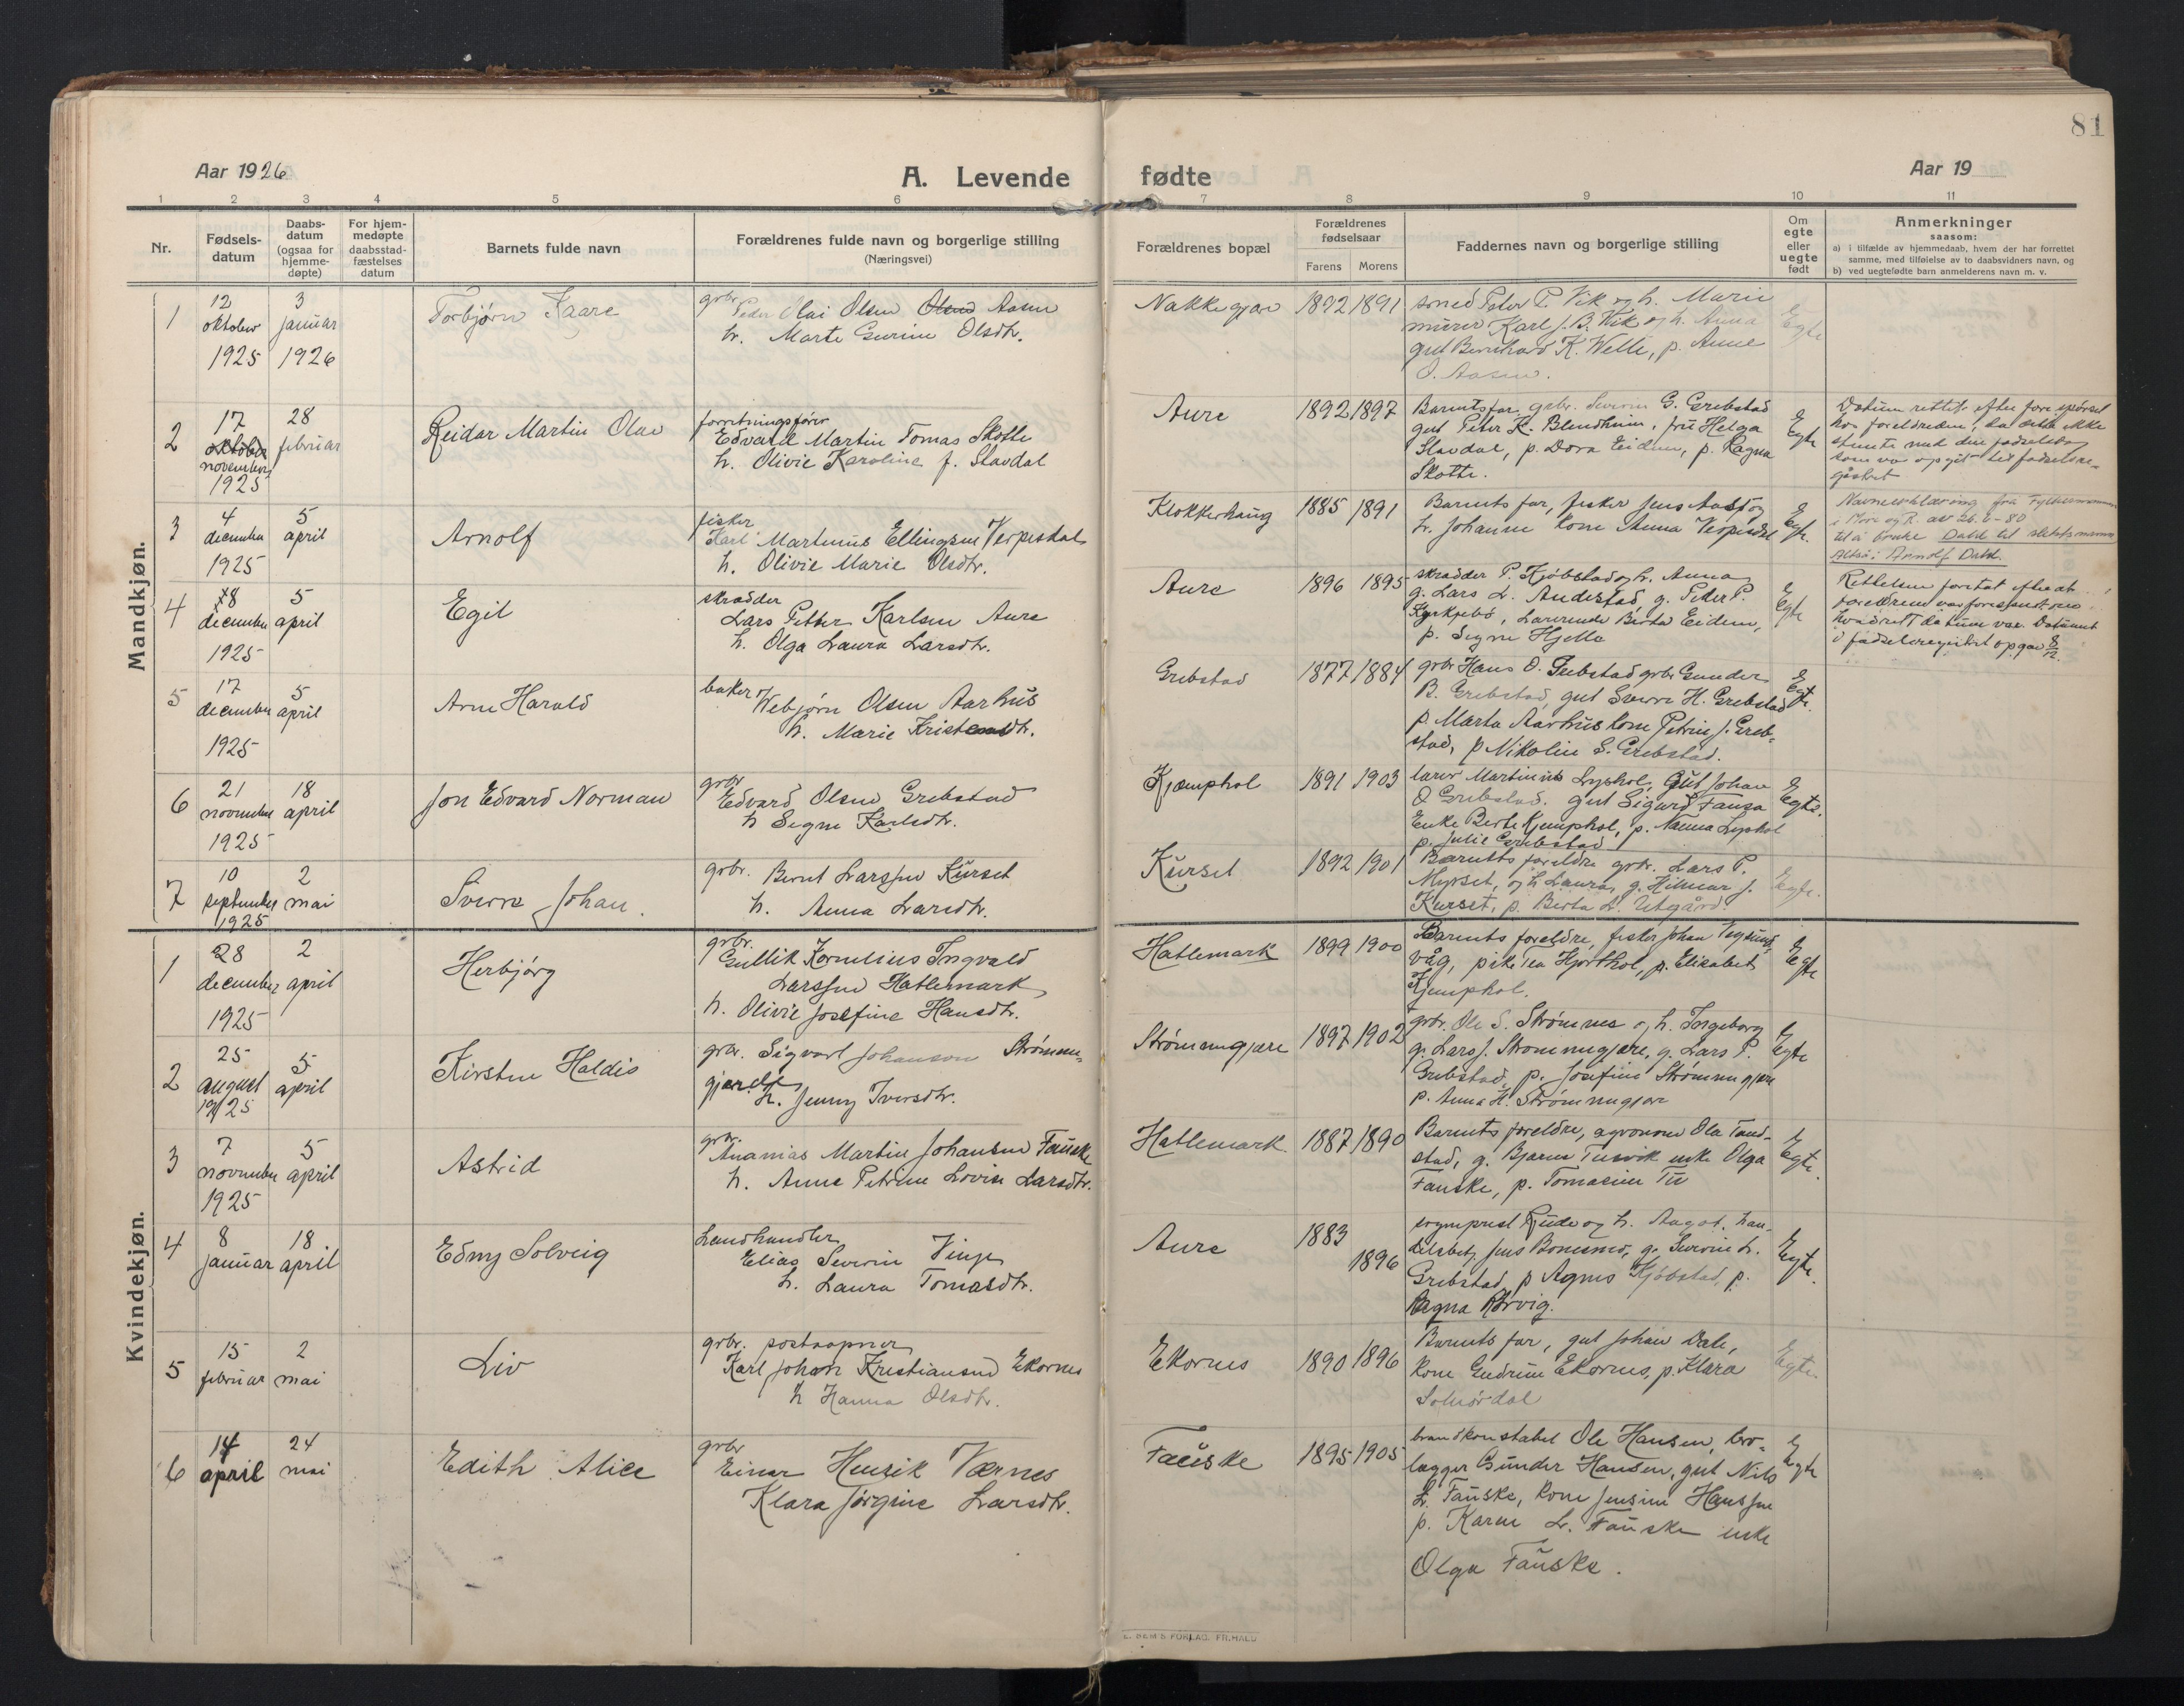 81
Aar 1926
A. Levende fødte
Aar 19
1 2 3 4 5 6 7 8 9 10 11
Nr.
Fødsels-
datum
Daabs-
datum
(ogsaa for
hjemme-
døpte)
For hjem-
medøpte
daabsstad-
fæstelses
datum
Barnets fulde navn
Forældrenes fulde navn og borgerlige stilling
(Næringsvei)
Forældrenes bopæl
Forældrenes
fødselsaar
Farens Morens
Faddernes navn og borgerlige stilling
Om
egte
eller
uegte
født
Anmerkninger
saasom:
a) i tilfælde av hjemmedaab, hvem der har forrettet
samme, med tilføielse av to daabsvidners navn, og
b) ved uegtefødte barn anmelderens navn m. v.
Mandkjøn.
1
12
oktober
1925
3
januar
1926
Torbjørn Kaare
grbr. Peder Olai Olsen Olsen Aasen
h. Marte Gurine Olsdtr.
Nakkegjære
1892 1891
smed Peter P. Vik og h. Marie
murer Karl J. B. Vik og h. Anna
gut Bernhard K. Welle, p. Anne
O. Aasen.
Egte
2
17
oktober
november
1925
28
februar
Reidar Martin Olav
forretningsfører
Edvard Martin Tomas Skotte
h. Olivie Karoline f. Slavdal
Aure
1892 1897
Barnets far, grbr. Severin G. Grebstad
gut Peter K. Blindheim, frü Helga
Slavdal, p. Dora Eidem, p. Ragna
Skotte.
Egte
Datum rettet efter forespørsel
hos foreldrene, da dette ikke
stemte med den fødselsdag
som var opgit til fødselsre-
gistret
3
4
december
1925
5
april
Arnolf
fisker
Karl Martinus Ellingsen Verpesdal
h. Olivie Marie Olsdtr.
Klokkerhaug
1885 1891
Barnets far, fisker Jens og
h. Johanne kone Anna Verpesdal
Egte.
Navneerklæring fra Fylkesmannen
i Møre og R. av 26.6-80
til å bruke Dahl til slektsnavn
Altså: Arnolf Dahl.
4
8
december
1925
5
april
Egil
skrædder
Lars Petter Karlsen Aure
h. Olga Laura Larsdtr.
Aure
1896 1895
skrædder P. Kjøbstad og h. Anna
g. Lars L. Andestad g. Peter P.
Kyrkjebø, Lærerinde Berta Eidem,
p. Signe Hjelle
Egte
Rettelsen foretat efterat
foreldrene var forespurt om
hvad rett datum var. Datumet
i fødselsregistret opgav 8/12.
5
17
december
1925
5
april
Arne Harald
baker Webjørn Olsen Aarhus
h. Marie Kristensdtr.
Grebstad
1877 1884
grbr Hans O. Grebstad grbr Gunder
B. Grebstad, gut Sverre H. Grebstad
p. Marta Aarhus kone Petrine J. Greb-
stad, p Nikoline S. Grebstad.
Egte.
6
21
november
1925
18
april
Jon Edvard Norman
grbr
Edvard Olsen Grebstad
h Signe Karlsdtr.
Kjæmphol
1891 1903
lærer Martinus Lyshol, Gut Johan
O Grebstad. gut Sigurd Fausa
Enke Berte Kjemphol, p. Nanna Lyshol
p. Julie Grebstad
Egte.
7
10
september
1925
2
mai
Sverre Johan
grbr. Bernt Larssen Kürset
h. Anna Larsdtr.
Kürset
1892 1901
Barnets foreldre grbr. Lars P.
Myrset, og h Laura, g. Hilmar J.
Kurset, p. Berta L. Utgård.
Egte.
Kvindekjøn.
1
28
december
1925
2
april
Herbjørg
grbr.
Gullik Kornelius Ingvald
Larssen Hatlemark
h. Olivie Josefine Hansdtr.
Hatlemark
1899 1900
Barnets foreldre, fisker Johan
våg, pike Hjorthol, p. Elisabet
Kjemphol.
Egte
2
25
august
1925
5
april
Kirsten Haldis
grbr. Sigvart Johansen Strømme-
gjerde
h. Jenny Iversdtr.
Strømmegjære
1897 1902
grbr. Ole S. Strømmes og h. Ingeborg
g. Lars J. Strømmegjære, g. Lars P.
Grebstad, p. Josefine Strømmegjære
p. Anna H. Strømmegjære
Egte
3
7
november
1925
5
april
Astrid
grbr.
Ananias Martin Johansen Fauske
h. Anne Petrine Lovise Larsdtr.
Hatlemark.
1887 1890
Barnets foreldre, agronom Ola Tand-
stad, g. Bjarne Tusvik enke Olga
Fauske, p. Tomasine Tu
Egte.
4
8
januar
18
april
Edny Solveig
Landhandler
Elias Severin Vinje
h. Laura Tomasdtr.
Aure
1883
1896
sogneprest Rude og h. Aagot, han-
delsbetj. Jens Bonesmo, g. Severin L.
Grebstad, p Agnes Kjøbstad, p.
Ragna Rørvig.
Egte.
5
15
februar
2
mai
Liv
grbr. postaapner
Karl Johan Kristiansen Ekornes
h Hanna Olsdtr.
Ekornes
1890 1896
Barnets far, gut Johan Dale,
kone Gudrun Ekornes, p. Klara
Solnørdal
Egte.
6
14
april
24
mai
Edith Alice
grbr
Einar Henrik Værnes
Klara Jørgine Larsdtr.
Fauske
1895 1905
brandkonstabel Ole Hansen, bro-
lægger Gunder Hansen, gut Nils
L. Fauske, kone Jensine Hanssen
p. Karen L. Fauske enke
Olga Fauske.
Egte
E. SEM'S FORLAG. FR.HALD